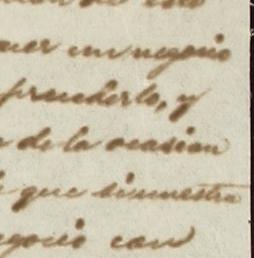 un negocio
prenderlo, y
de la ocasion
que si nuestra
negocio con